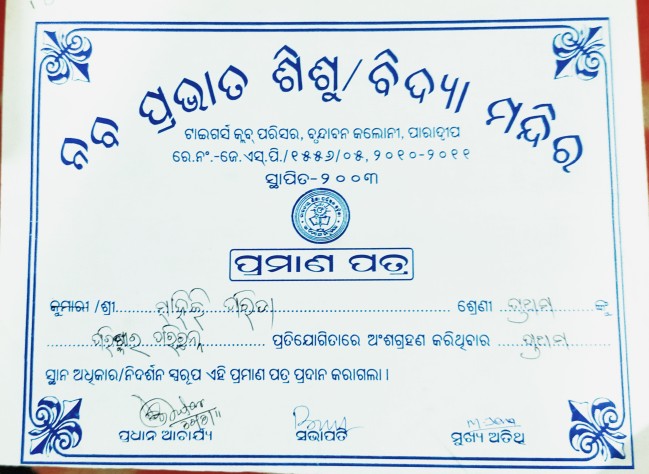 ନବ ପ୍ରଭାତ ଶିଶୁ/ବିଦ୍ୟା ମନ୍ଦିର
ଟାଇଗର୍ସ କ୍ଲବ୍ ପରିସର, ବୃନ୍ଦାବନ କଲୋନୀ, ପାରାଦ୍ୱୀପ
ରେ.ନଂ.-ଜେ.ଏସ୍.ପି./୧୫୫୬/୦୫, ୨୦୧୦-୨୦୧୧
ସ୍ଥାପିତ-୨୦୦୩
ପ୍ରମାଣ ପତ୍ର
କୁମାରୀ /ଶ୍ରୀ ଶ୍ରେଣୀ ପ୍ରଥମ ଙ୍କୁ
ପରିଷ୍କାର ପରିଚ୍ଛନ୍ନ ପ୍ରତିଯୋଗିତାରେ ଅଂଶଗ୍ରହଣ କରିଥିବାର ପ୍ରଥମ
ସ୍ଥାନ ଅଧିକାର/ନିଦର୍ଶନ ସ୍ୱରୂପ ଏହି ପ୍ରମାଣ ପତ୍ର ପ୍ରଦାନ କରାଗଲା ।
ପ୍ରଧାନ ଆଚାର୍ଯ୍ୟ ସଭାପତି ମୁଖ୍ୟ ଅତିଥି